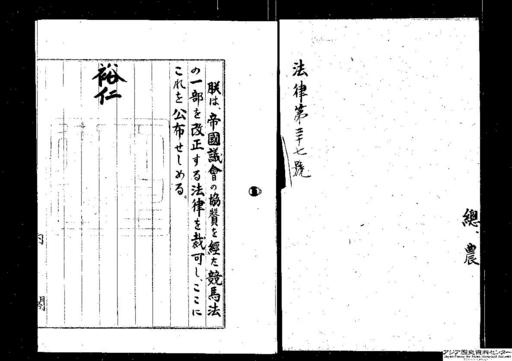 法律第三十七號
總、農
朕は、帝國議會の協賛を経た競馬法
の一部を改正する法律を裁可し、ここに
これを公布せしめる。
裕仁
アジア歴史資料センター